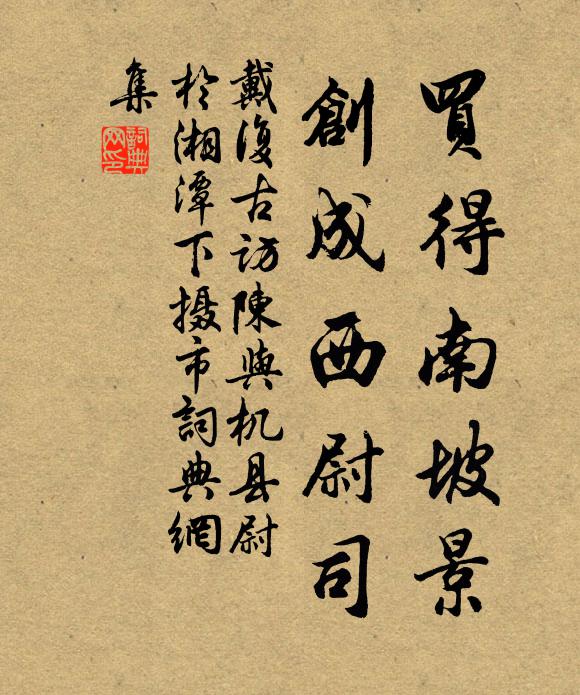 買得南坡景
創成西尉司
戴復古訪陳與机县尉
於湘潭下摄市詞典網
集
詞典网印